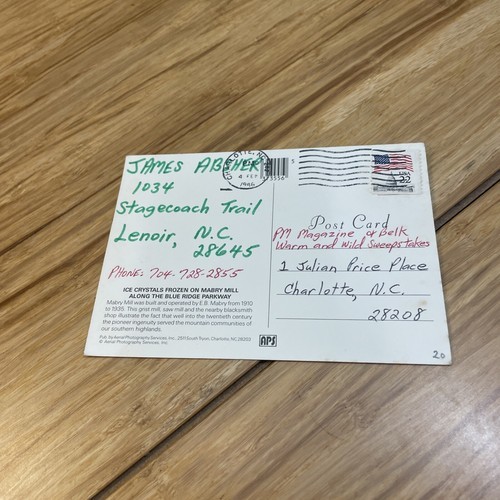 JAMES
1034
Stagecoach Trail
Lenoir, N.C.
28645
PHONE: 704-728-2855
ICE CRYSTALS FROZEN ON MABRY MILL
ALONG THE BLUE RIDGE PARKWAY
Mabry Mill was built and operated by E.B. Mabry from 1910
to 1935. This grist mill, saw mill and the nearby blacksmith
shop illustrate the fact that well into the twentieth century
the pioneer ingenuity served the mountain communities of
our southern highlands.
Pub. by Aerial Photography Services, Inc., 2511 South Tryon, Charlotte, NC 28203
© Aerial Photography Services, Inc.
APS
CHARLOTTE, NC
4 FEB
1986
USA
22
Post Card
PM Magazine of Belk
Warm and Wild Sweepstakes
1 Julian Price Place
Charlotte, N.C.
28208
20